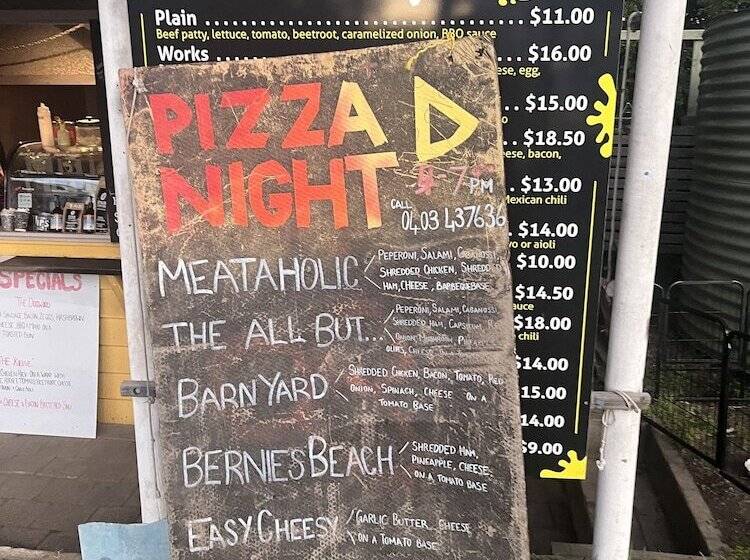 Plain ........ $11.00
Beef patty, lettuce, tomato, beetroot, caramelized onion, BBQ sauce
Works ........ $16.00
ese, egg,
.. $15.00
$18.50
ese, bacon,
. $13.00
Mexican chili
. $14.00
vo or aioli
$10.00
$14.50
auce
$18.00
chili
$14.00
15.00
14.00
$9.00
PIZZA
NIGHT
PM
CALL
0403 437636
MEATAHOLIC
PEPERONI, SALAMI, CABANOSSI,
SHREDDED CHICKEN, SHREDDED
HAM, CHEESE, BARBEQUE BASE
THE ALL BUT...
PEPERONI, SALAMI, CABANOSSI,
SHREDDED HAM, CAPSICUM,
ONION, MUSHROOM,
BARNYARD
SHREDDED CHICKEN, BACON, TOMATO, RED
ONION, SPINACH, CHEESE ON A
TOMATO BASE
BERNIES BEACH
SHREDDED HAM,
PINEAPPLE, CHEESE,
ON A TOMATO BASE
EASY CHEESY
GARLIC BUTTER, CHEESE
ON A TOMATO BASE
SPECIALS